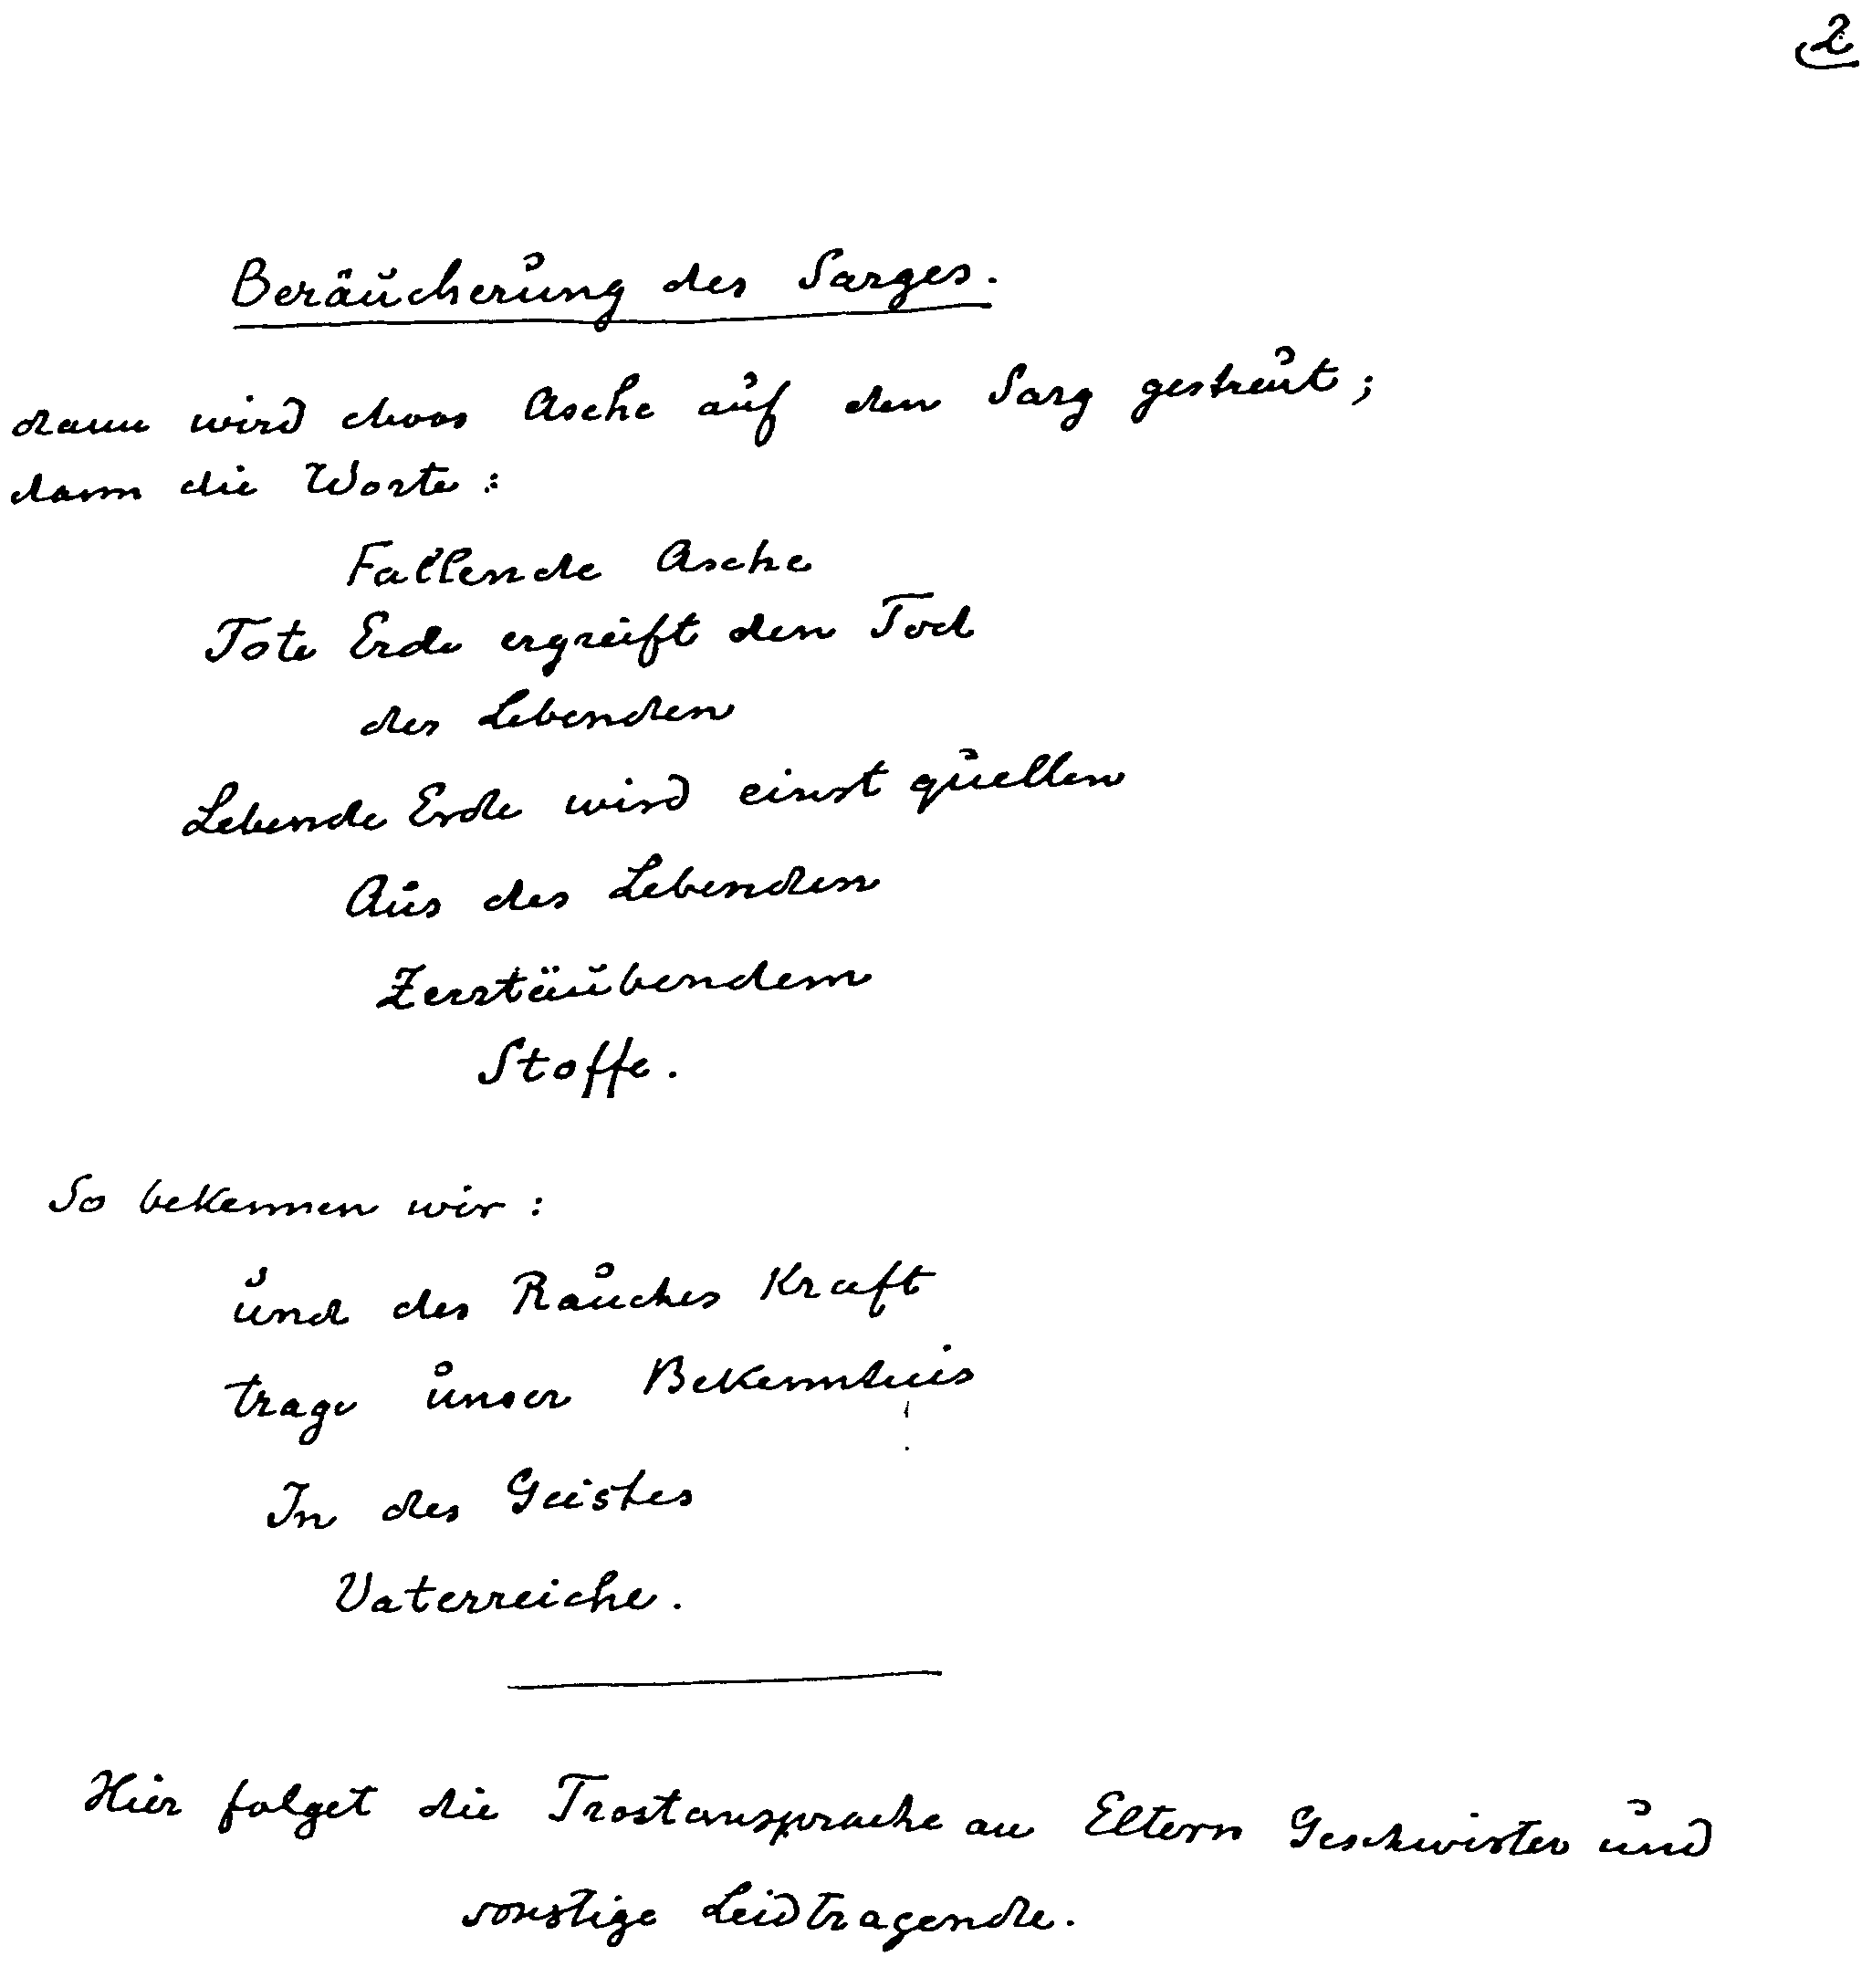 2
Beräucherung des Sarges.
dann wird etwas Asche auf den Sarg gestreut;
dann die Worte:
Fallende Asche
Tote Erde ergreift den Tod
des Lebenden
Lebende Erde wird einst quellen
Aus des Lebenden
Zerstäubendem
Stoffe.
So bekennen wir:
und des Rauches Kraft
trage unser Bekenntnis
In des Geistes
Vaterreiche.
Hier folget die Trostansprache an Eltern Geschwister und
sonstige Leidtragende.